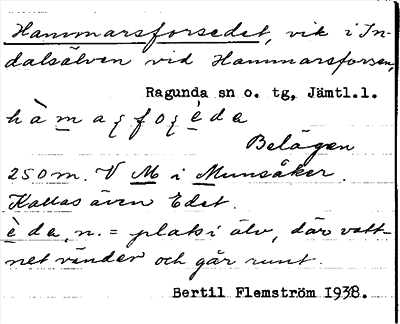 Hammarsforsedet, vik i In-
dalsälven vid Hammarsforsen,
Ragunda sn o. tg, Jämtl.l.
hàmaʃfoʃèda
Belägen
250 m. V M i Munsåker.
Kallas även Edet.
èda, n. = plats i älv, där vatt-
net vänder och går runt.
Bertil Flemström 1938.